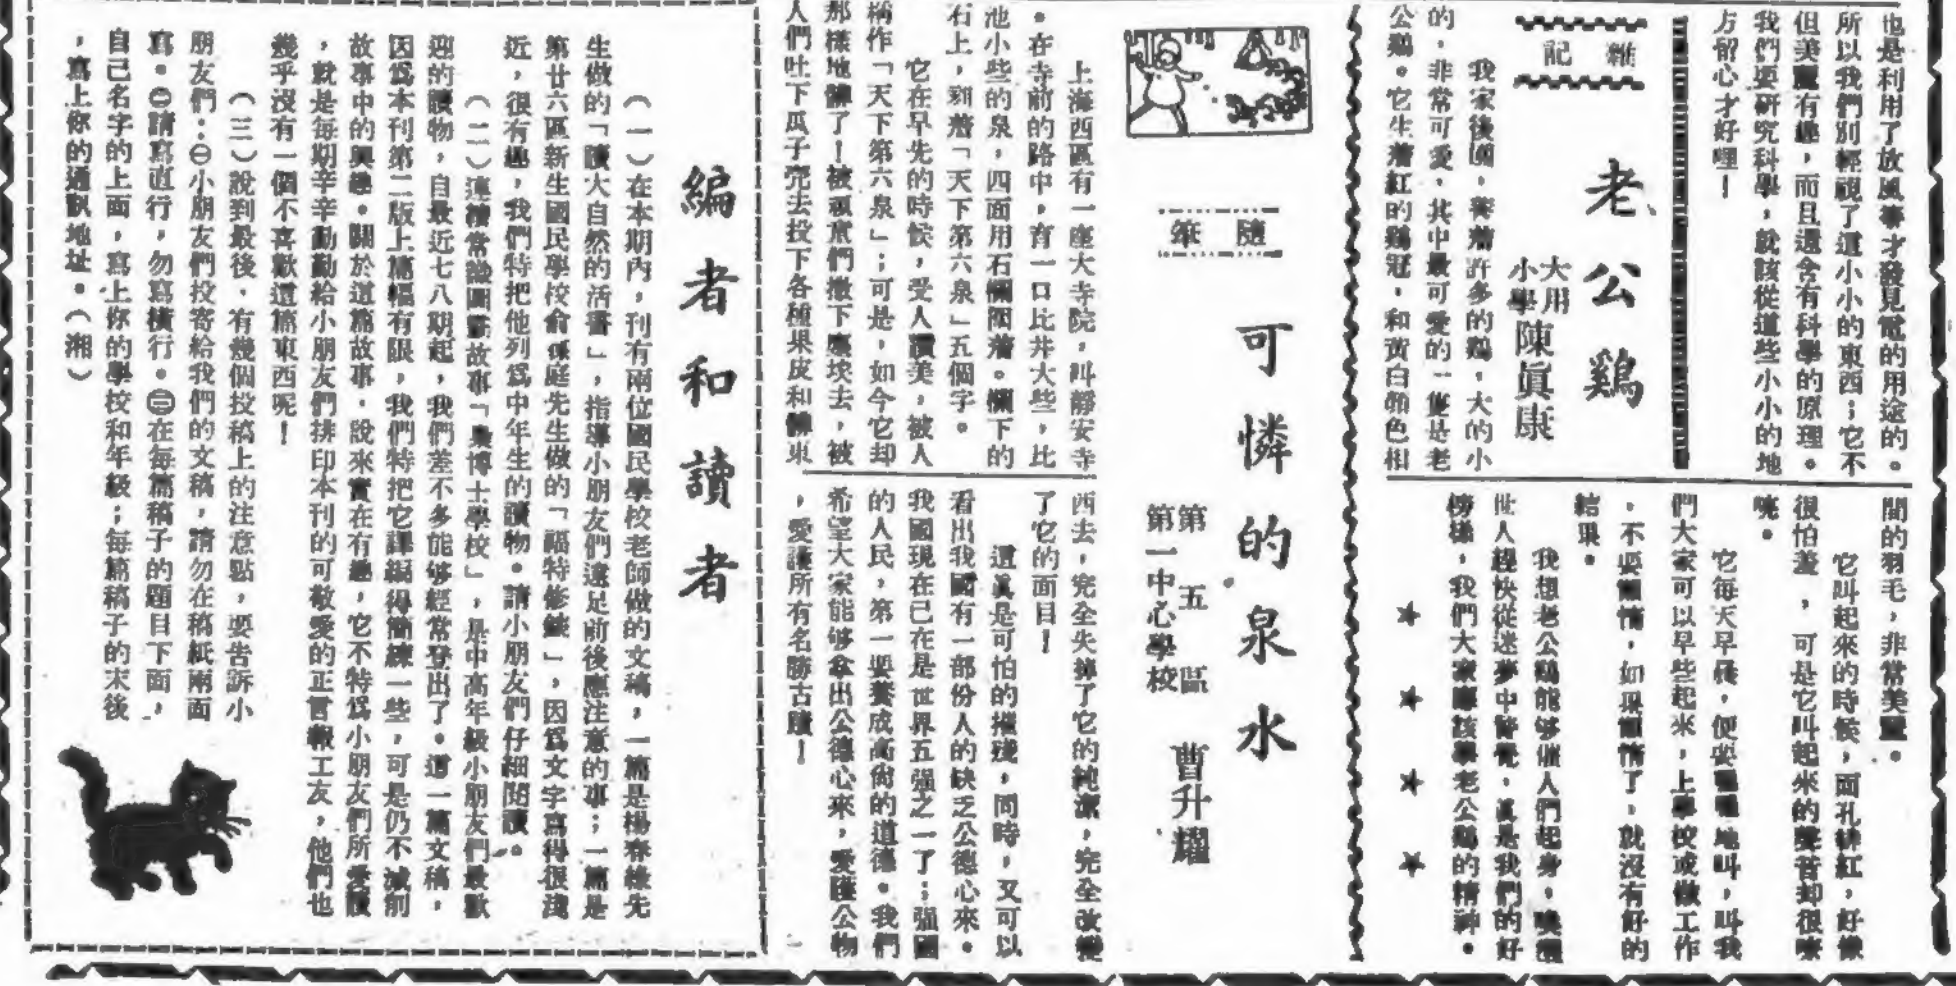 也是利用了放風箏才發見電的用途的。
所以我們別輕視了這小小的東西；它不
但美麗有趣，而且還含有科學的原理。
我們要研究科學，就該從這些小小的地
方留心才好哩！
雜記
老公鷄
大用小學 陳眞康
我家後園，養着許多的鷄，大的小
的，非常可愛，其中最可愛的一隻是老
公鷄。它生着紅的鷄冠，和黃白顏色相
間的羽毛，非常美麗。
它叫起來的時候，面孔緋紅，好像
很怕羞，可是它叫起來的聲音却很嘹
喨。
它每天早晨，便要喔喔地叫，叫我
們大家可以早些起來，上學校或做工作
，不要懶惰，如果懶惰了，就沒有好的
結果。
我想老公鷄能够催人們起身，喚醒
世人趕快從迷夢中警覺，眞是我們的好
榜樣，我們大家應該學老公鷄的精神。
隨筆
可憐的泉水
第五區
第一中心學校 曹升耀
上海西區有一座大寺院，叫靜安寺
。在寺前的路中，有一口比井大些，比
池小些的泉，四面用石欄圍着。欄下的
石上，刻着「天下第六泉」五個字。
它在早先的時候，受人讚美，被人
稱作「天下第六泉」；可是，如今它却
那樣地髒了！被頑童們撒下塵埃去，被
人們吐下瓜子壳去投下各種果皮和髒東
西去，完全失掉了它的純潔，完全改變
了它的面目！
這眞是可怕的摧殘，同時，又可以
看出我國有一部份人的缺乏公德心來。
我國現在已在是世界五强之一了；强國
的人民，第一要養成高尙的道德。我們
希望大家能够拿出公德心來，愛護公物
，愛護所有名勝古蹟！
編者和讀者
（一）在本期內，刊有兩位國民學校老師做的文稿，一篇是楊春綠先
生做的「讀大自然的活書」，指導小朋友們遠足前後應注意的事；一篇是
第廿六區新生國民學校俞庭先生做的「福特修錶」，因爲文字寫得很淺
近，很有趣，我們特把他列爲中年生的讀物。請小朋友們仔細閱讀。
（二）連續常識圖畫故事「集博士學校」，是中高年級小朋友們最歡
迎的讀物，自最近七八期起，我們差不多能够經常登出了。這一篇文稿，
因爲本刊第二版上篇幅有限，我們特把它課編得簡練一些，可是仍不減削
故事中的興趣。關於這篇故事，說來實在有趣，它不特爲小朋友們所愛讀
，就是每期辛辛勤勤給小朋友們排印本刊的可敬愛的正言報工友，他們也
幾乎沒有一個不喜歡這篇東西呢！
（三）說到最後，有幾個投稿上的注意點，要告訴小
朋友們：㊀小朋友們投寄給我們的文稿，請勿在稿紙兩面
寫。㊁請寫直行，勿寫橫行。㊂在每篇稿子的題目下面，
自己名字的上面，寫上你的學校和年級；每篇稿子的末後
，寫上你的通訊地址。（湘）